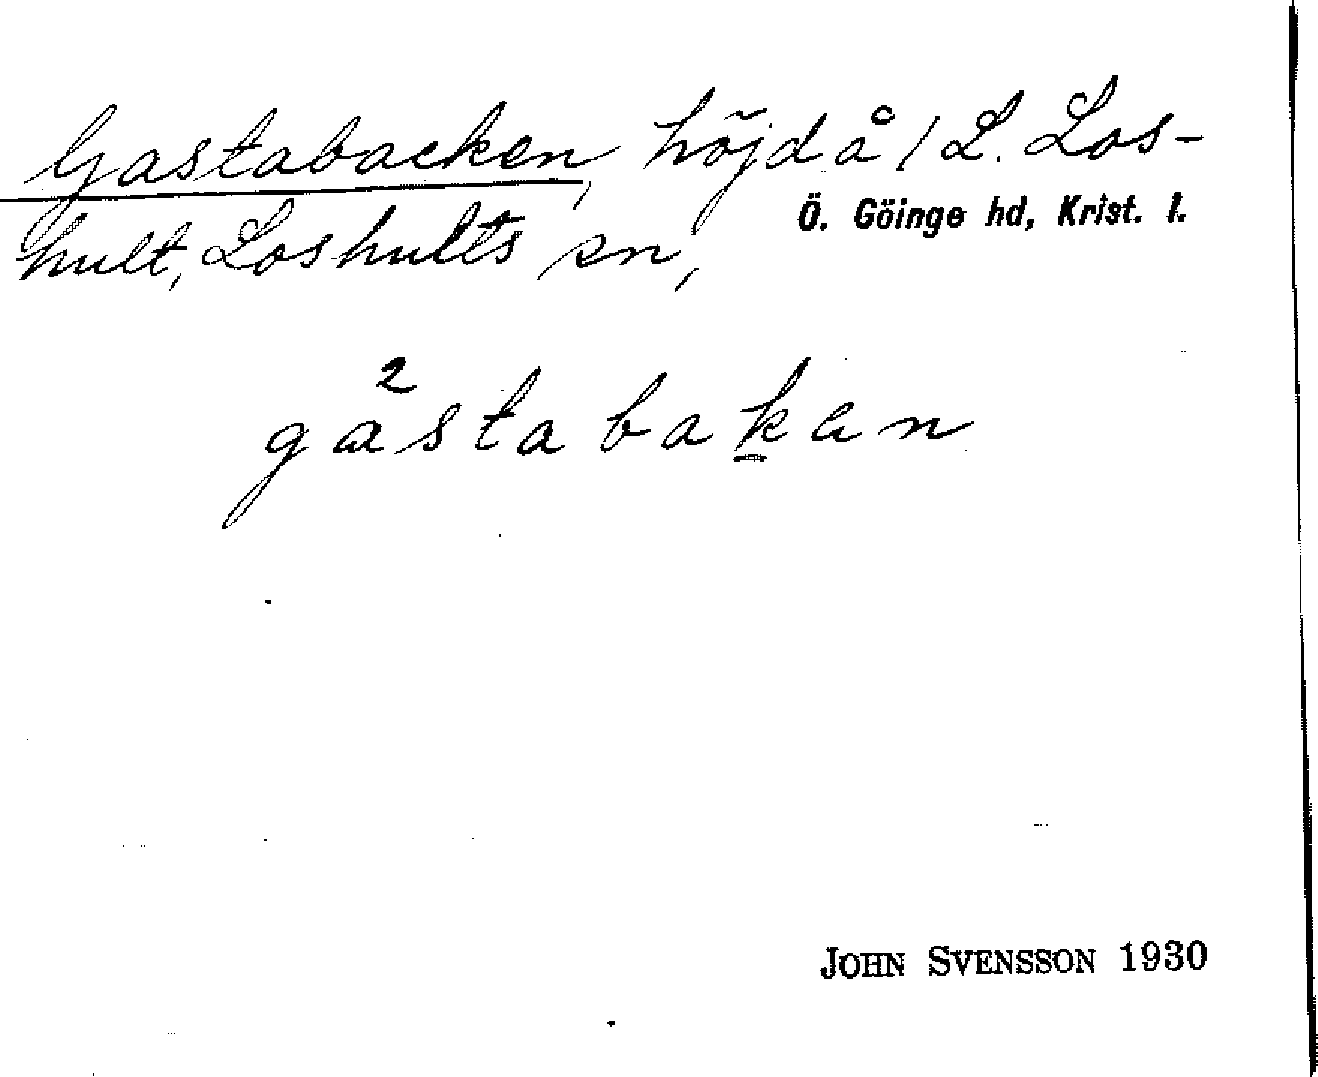 Gastabacken, höjd å 1 L. Los-
hult, Loshults sn,
Ö. Göinge hd, Krist. l.
ga²stabaken
JOHN SVENSSON 1930